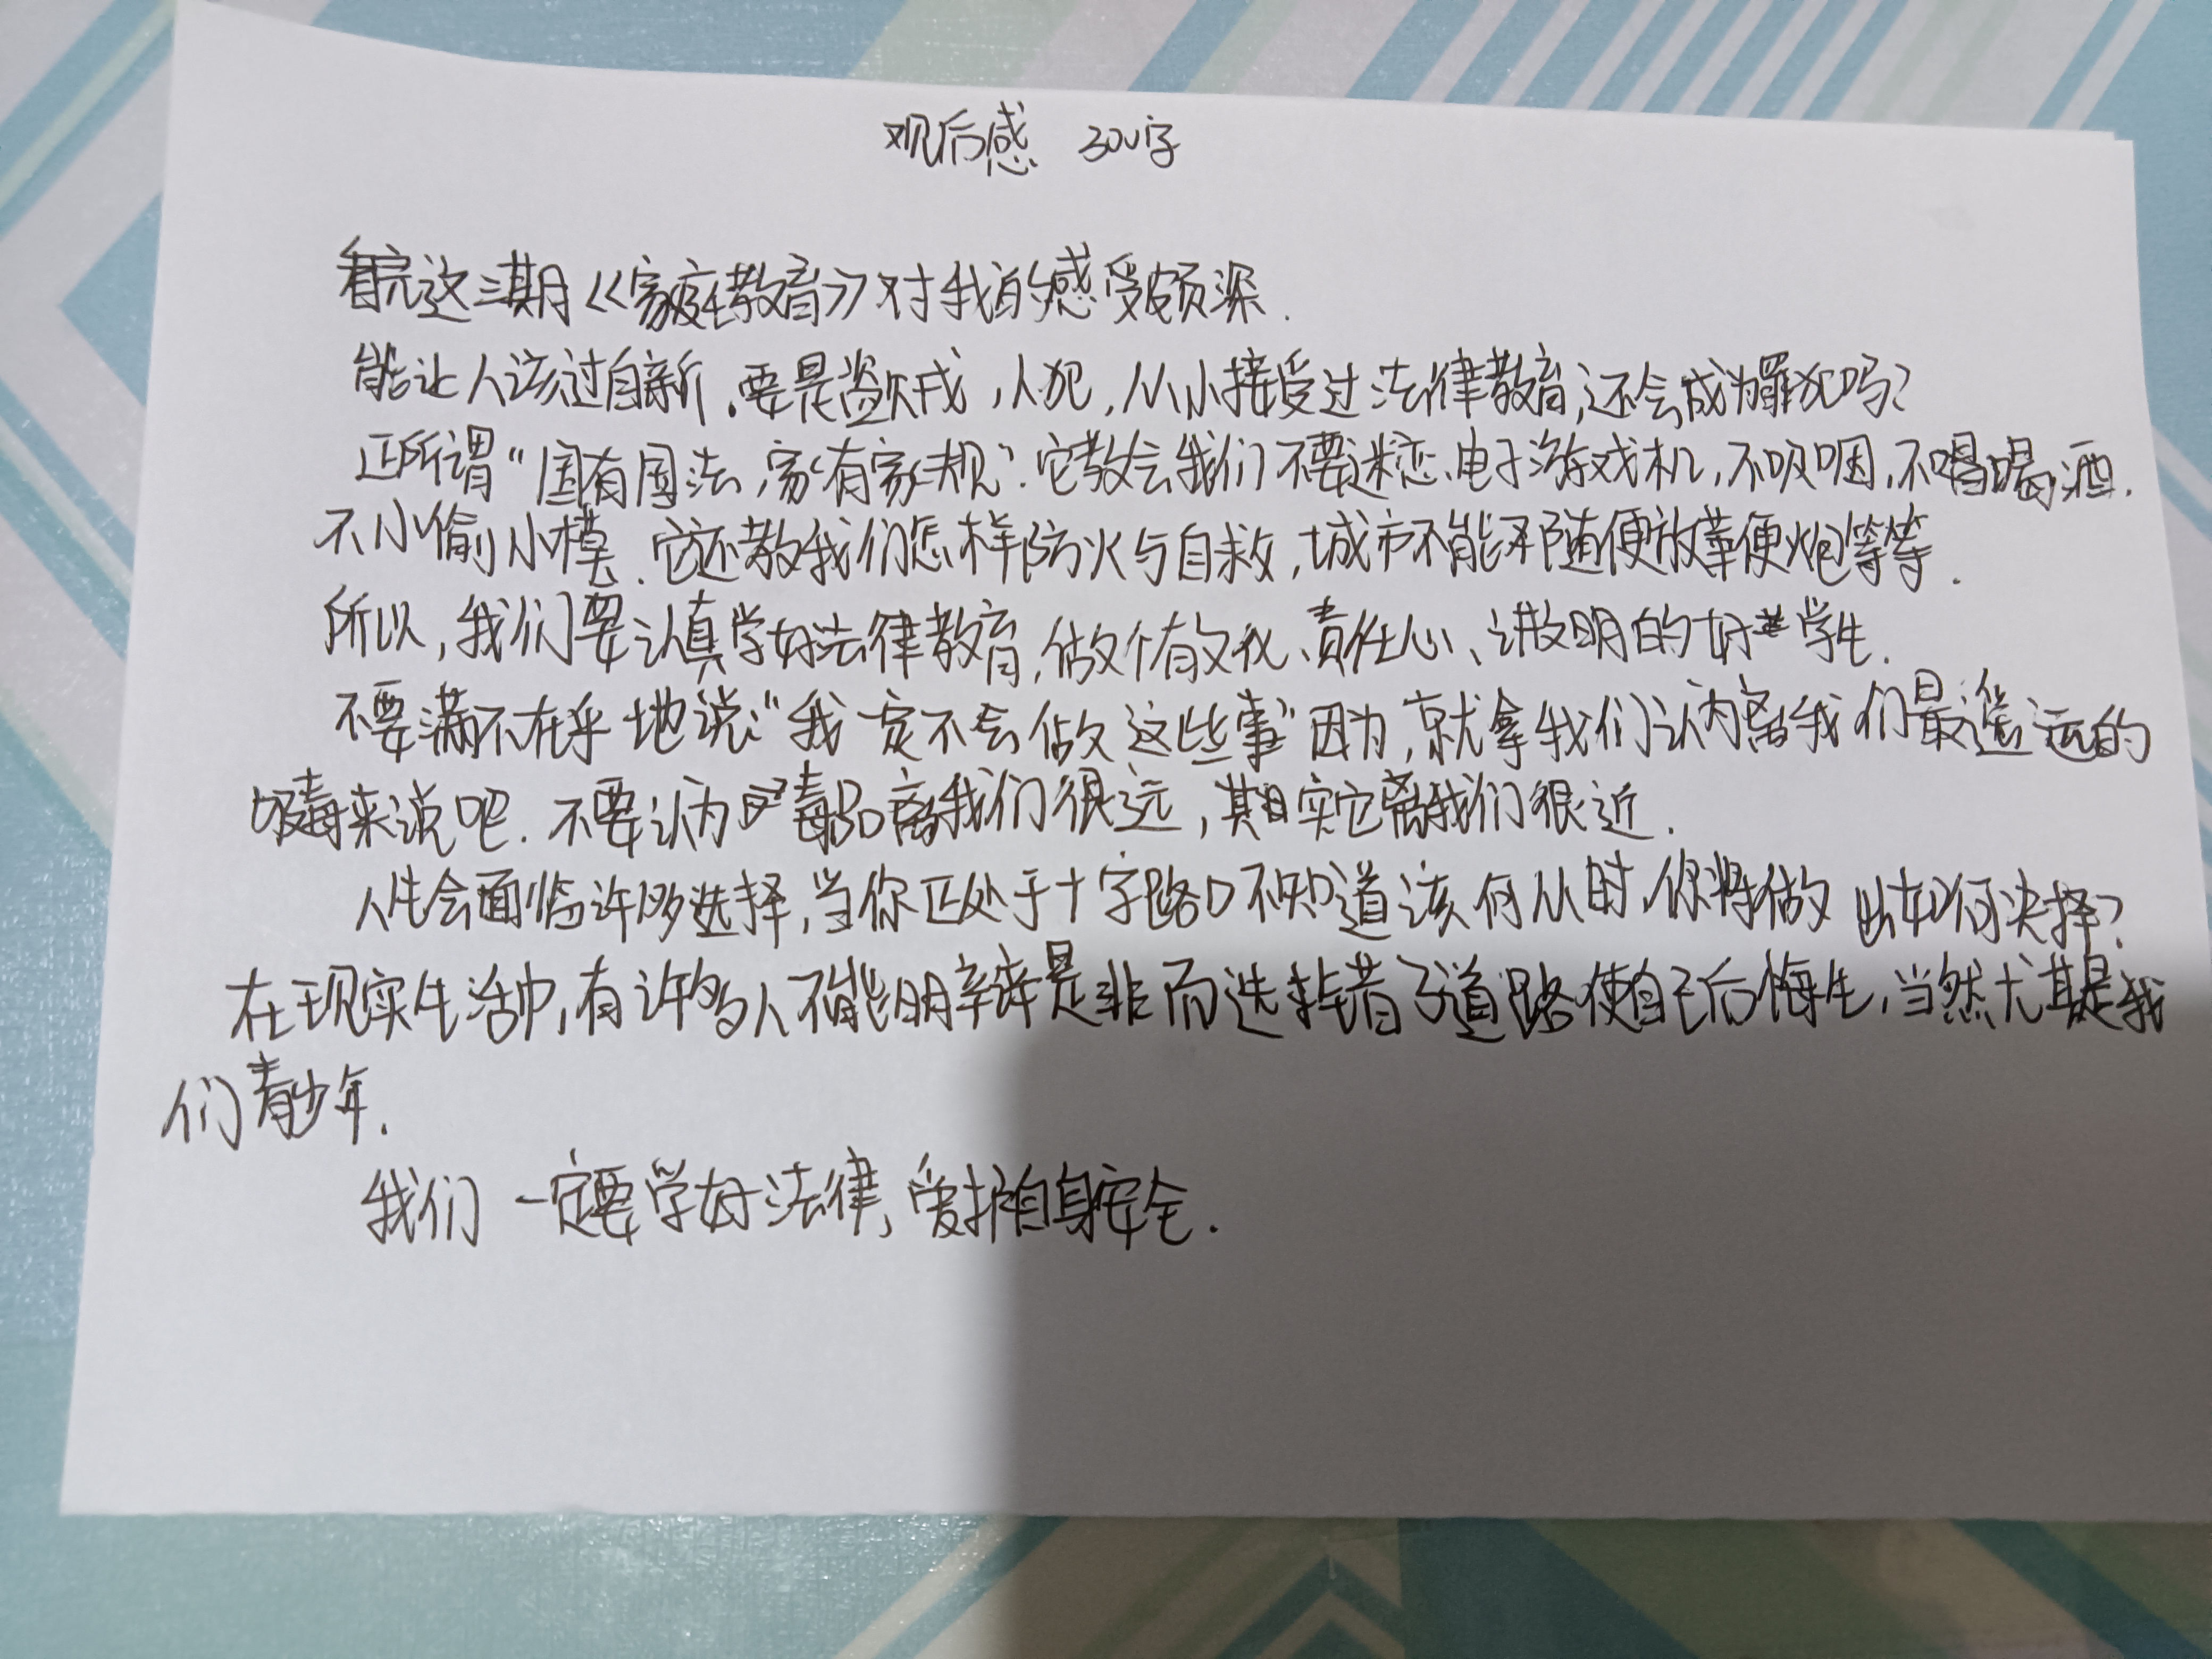 观后感 300字
看完这三期《家庭教育》对我的感受颇深.
能让人该过自新.要是盗贼,人犯,从小接受过法律教育,还会成为罪犯吗?
正所谓“国有国法,家有家规”.它教会我们不要迷恋电子游戏机,不吸烟,不喝酒.
不小偷小模.它还教我们怎样防火与自救,城市不能随便放革便炮等等.
所以,我们要认真学好法律教育,做个有文化、责任心、讲文明的好学生.
不要满不在乎地说:“我一定不会做这些事”因为,就拿我们认为离我们最遥远的
吸毒来说吧.不要认为毒品离我们很远,其实它离我们很近.
人生会面临许多选择,当你正处于十字路口不知道该何从时,你将做出如何决择?
在现实生活中,有许多人不能明辨是非而选择错了道路使自己后悔生,当然尤其是我
们青少年.
我们一定要学好法律,爱护自身安全.